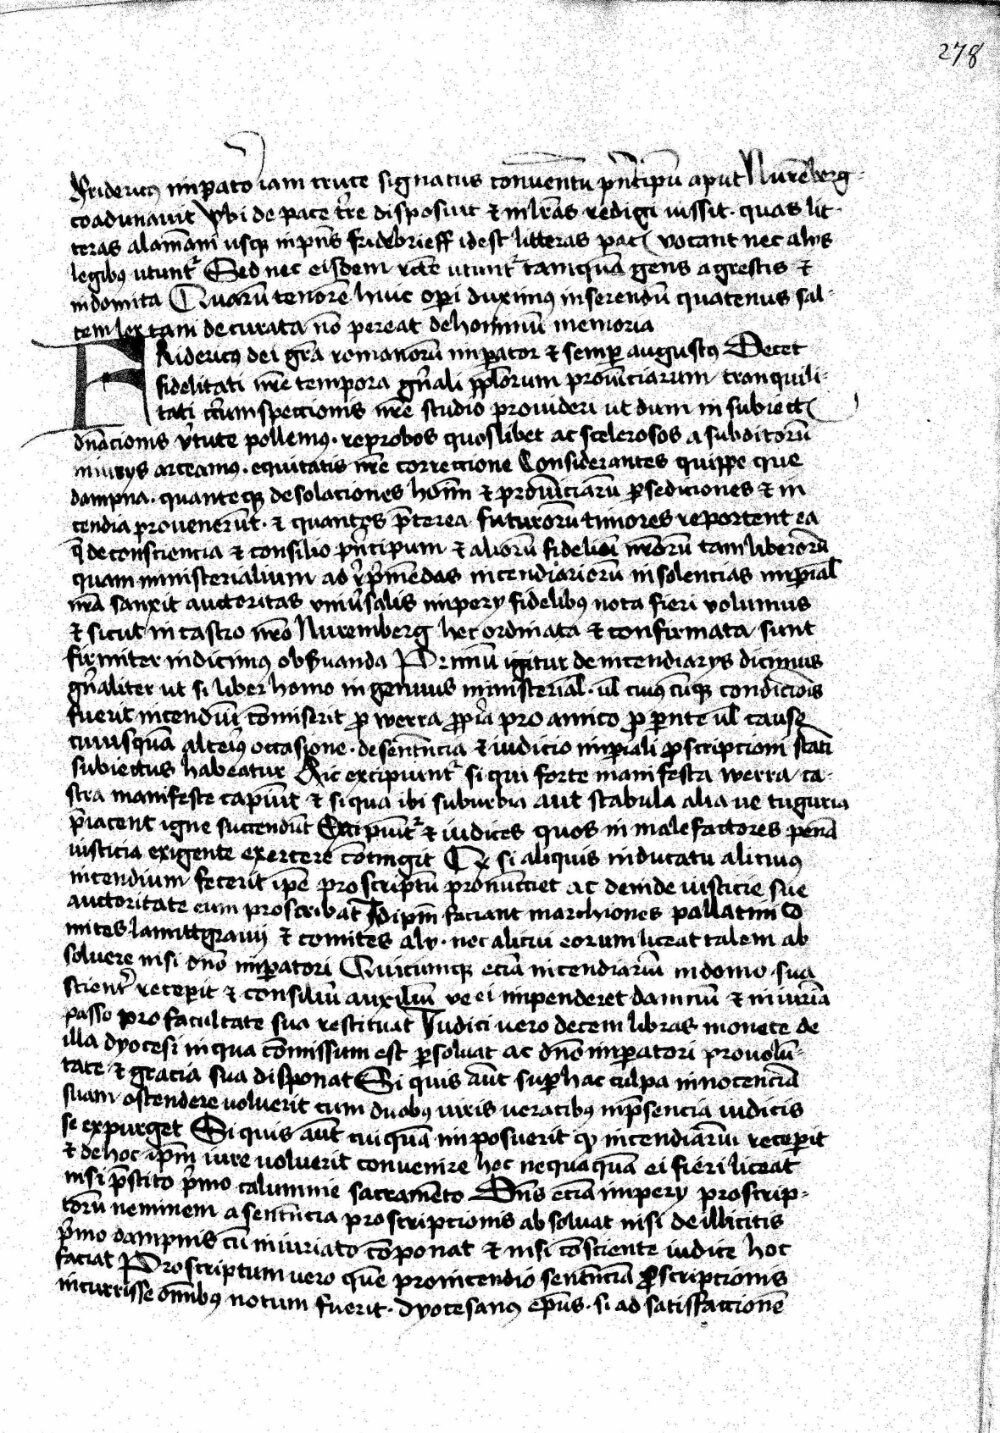 278
Fridericus impator iam cruce signatus conventu pncipu aput Nurenberg
coadunavit Vbi de pace tre disposuit & in lras redigi iussit quas lit
teras alamani usqz in pns fridebrieff id est litteras pacis vocant nec alijs
legibus utuntr Sed nec eisdem rcte utuntr tamqua gens agrestis &
indomita Quaru tenore huic opi duximus inserendu quatenus sal
tem lex tam decurata no pereat de hominu memoria
FRidericus dei gra romanoru impator & semp augustus Decet
fidelitati nre tempora gnali pplorum prouinciarum tranquili
tati circumspeccionis nre studio provideri ut dum in subiect
dnacionis vtute pollemus reprobos quoslibet ac scelerosos a subditoru
iniurys arceamus equitatis nre correccione Considerantes quippe que
dampna quanteqz desolaciones homn & prouinciaru p sediciones & in
cendia provenerunt & quantos pterea futuroru timores reportent ea
q de consciencia & consilio pncipum & alioru fidelium nroru tam liberoru
quam ministerialium ad rpmendas incendiarioru insolencias impial
nra sanxit auctoritas vniusalis impery fidelibus nota fieri volumus
& sicut in castro nro Nuremberg hec ordinata & confirmata sunt
firmiter indicimus obseruanda Primu igitur de incendiarys dicimus
gnaliter ut si liber homo ingenuus ministerial ul cuiuscunqz condiciois
fuerit incendiu comiserit p werra ppia pro amico p pente ul cause
cuiusqua alterius occasione de sentencia & iudicio impiali pscripcioni stati
subiectus habeatur Hic excipiuntr si qui forte manifesta werra ca
stra manifeste capiunt & si qua ibi suburbia aut stabula alia ve tuguria
piacent igne succendunt Excipiuntr & iudices quos in malefactores pena
iusticia exigente exercere contingit Qz si aliquis in ducatu alicuius
incendium fecerit ipe proscriptu pronuncciet ac deinde iusticie sue
auctoritate eum proscribat Idipm faciant marchiones pallatini co
mites lanittgravij & comites aly nec alicui eorum liceat talem ab
soluere nisi dno impatori Quicumqz ecia incendiariu in domo sua
scientr receperit & consiliu auxiliu ve ei impenderet damnu & iniuria
passo pro facultate sua restituat Iudici vero decem libras monete de
illa dyocesi in qua comissum est psoluat ac dno impatori pro volun
tate & gracia sua disponat Si quis aut sup hac culpa innocencia
suam ostendere voluerit cum duobus uiris veracibus in psencia iudicis
se expurget Si quis aut cuiqua imposuerit qz incendiariu receperit
& de hoc ipm iure voluerit convenire hoc nequaqua ei fieri liceat
nisi pstito pmo calumnie sacramento Dns ecia impery proscrip
toru neminem a sentencia proscripcionis absoluat nisi de illicitis
pmo dampnis cu iniuriato componat & nisi consciente iudice hoc
faciat Proscriptum vero que pro incendio sentencia pscripcionis
incurrisse omibus notum fuerit dyocesanus epus si ad satisfaccione